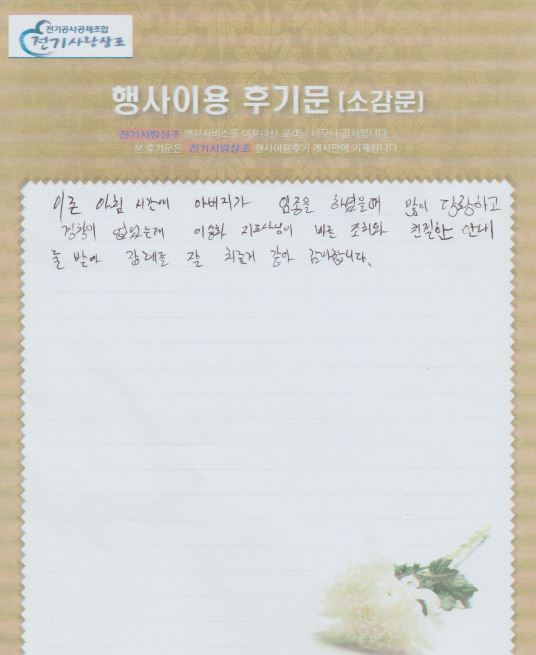 전기공사공제조합
전기사랑상조
행사이용 후기문 [소감문]
전기사랑상조 행사서비스를 이용하신 고객님 너무나 감사합니다.
본 후기문은 전기사랑상조 행사이용후기 게시판에 기재됩니다.
이른 아침 시간에 아버지가 임종을 하셨을때 많이 당황하고
경황이 없었는데 이승화 지도사님이 빠른 조치와 친절한 안내
를 받아 장례를 잘 치른거 같아 감사합니다.